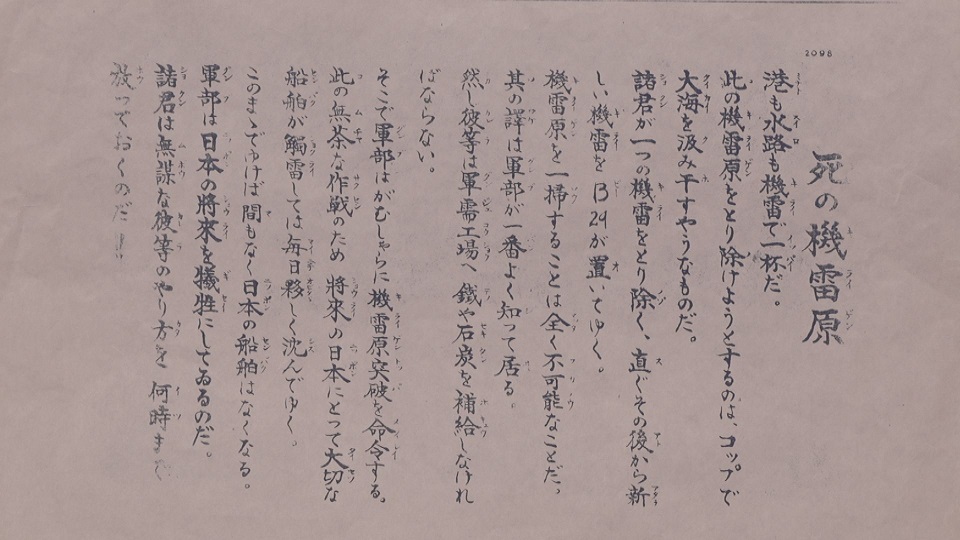 2098
死の機雷原
港も水路も機雷で一杯だ。
此の機雷原をとり除けようとするのは、コップで
大海を汲み干すやうなものだ。
諸君が一つの機雷をとり除く、直ぐその後から新
しい機雷をB29が置いてゆく。
機雷原を一掃することは全く不可能なことだ。
其の譯は軍部が一番よく知って居る。
然し彼等は軍需工場へ鐵や石炭を補給しなけれ
ばならない。
そこで軍部はがむしゃらに機雷原突破を命令する。
此の無茶な作戦のため將來の日本にとって大切な
船舶が觸雷しては毎日夥しく沈んでゆく。
このまゝでゆけば間もなく日本の船舶はなくなる。
軍部は日本の將來を犠牲にしてゐるのだ。
諸君は無謀な彼等のやり方を何時まで
放っておくのだ!!